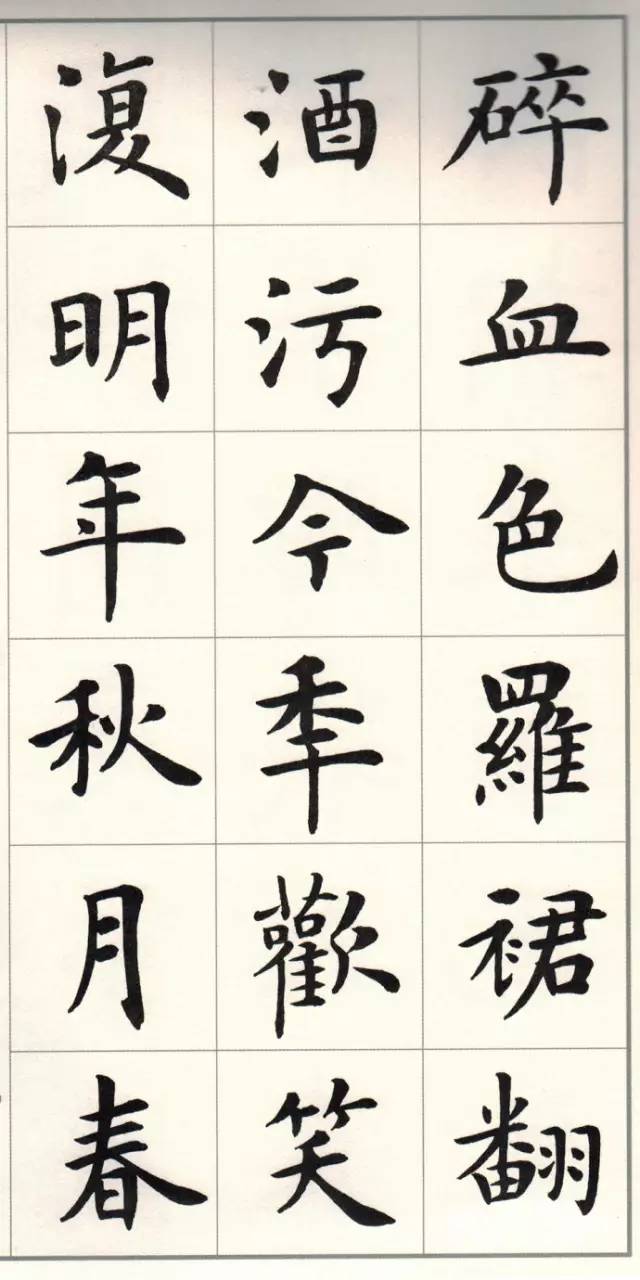 碎血色羅裙翻
酒污今秊歡笑
復明年秋月春